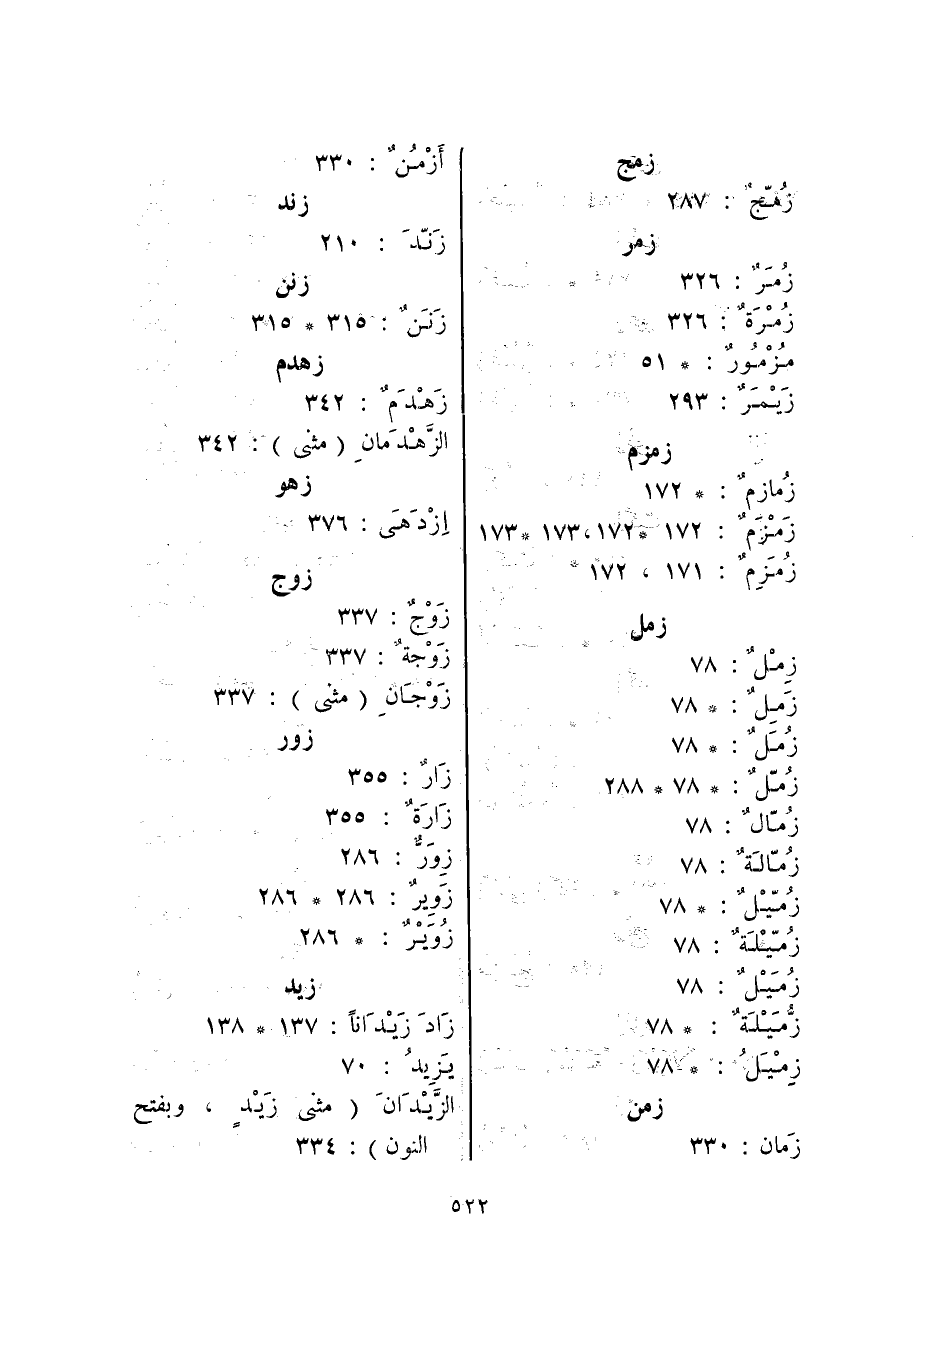 زمج
زُمَّجٌ : ٢٨٧
زمر
زُمَرٌ : ٣٢٦
زُمْرَةٌ : ٣٢٦
مُزْمُورٌ : * ٥١
زَيْمَرٌ : ٢٩٣
زمزم
زُمازِمٌ : * ١٧٢
زَمْزَمٌ : ١٧٢ *١٧٢،١٧٣ *١٧٣
زُمَزِمٌ : ١٧١ ، ١٧٢
زمل
زِمْلٌ : ٧٨
زَمِلٌ : * ٧٨
زُمَلٌ : * ٧٨
زُمَّلٌ : * ٧٨ * ٢٨٨
زُمَّالٌ : ٧٨
زُمَّالَةٌ : ٧٨
زُمَّيْلٌ : * ٧٨
زُمَّيْلَةٌ : ٧٨
زُمَيْلٌ : ٧٨
زُمَيْلَةٌ : * ٧٨
زِمْيَلٌ : * ٧٨
زمن
زَمان : ٣٣٠
أَزْمُنٌ : ٣٣٠
زند
زَنَّدَ : ٢١٠
زنن
زَنَنٌ : ٣١٥ * ٣١٥
زهدم
زَهْدَمٌ : ٣٤٢
الزَّهْدَمانِ ( مثنى ) : ٣٤٢
زهو
اِزْدَهَى : ٣٧٦
زوج
زَوْجٌ : ٣٣٧
زَوْجةٌ : ٣٣٧
زَوْجَانِ ( مثنى ) : ٣٣٧
زور
زَارٌ : ٣٥٥
زَارَةٌ : ٣٥٥
زِوَرٌّ : ٢٨٦
زَوِيرٌ : ٢٨٦ * ٢٨٦
زُوَيْرٌ : * ٢٨٦
زيد
زَادَ زَيْدَاناً : ١٣٧ * ١٣٨
يَزِيدُ : ٧٠
الزَّيْدَانَ ( مثنى زَيْدٍ ، وبفتح
النون ) : ٣٣٤
٥٢٢